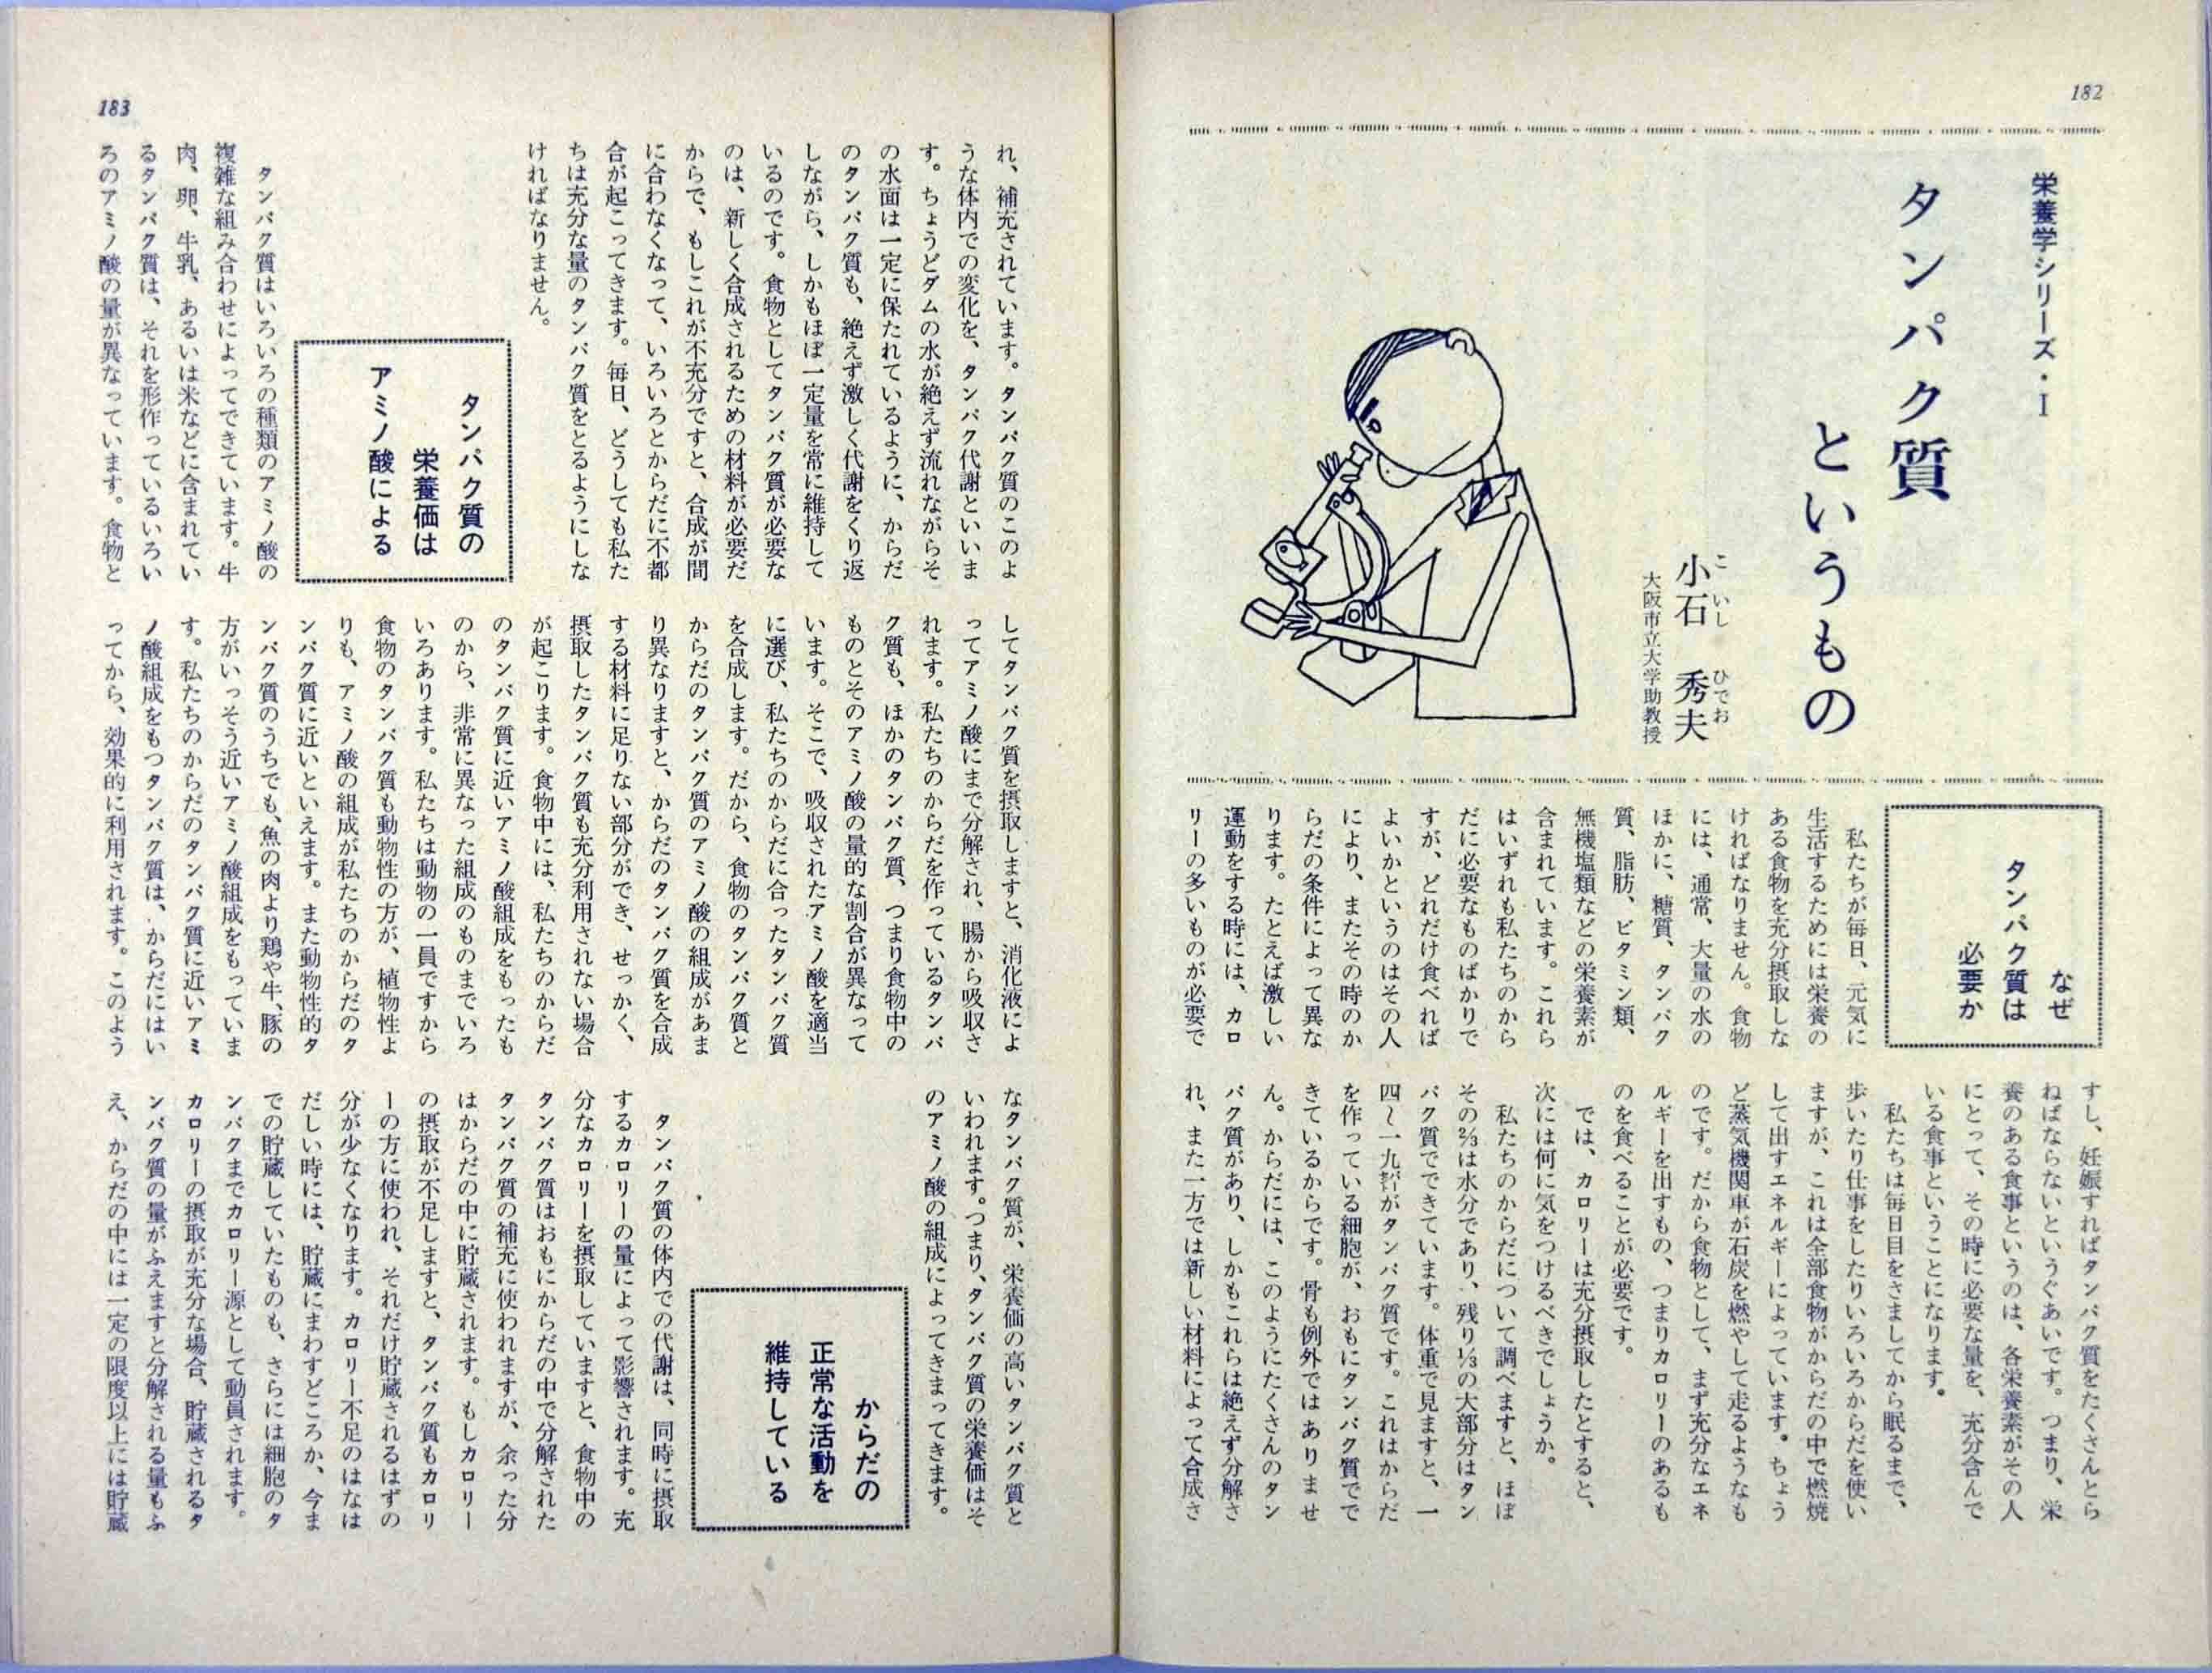 182
栄養学シリーズ・Ⅰ
タンパク質
というもの
小石　秀夫
こいし　ひでお
大阪市立大学助教授
なぜ
タンパク質は
必要か
私たちが毎日、元気に
生活するためには栄養の
ある食物を充分摂取しな
ければなりません。食物
には、通常、大量の水の
ほかに、糖質、タンパク
質、脂肪、ビタミン類、
無機塩類などの栄養素が
含まれています。これら
はいずれも私たちのから
だに必要なものばかりで
すが、どれだけ食べれば
よいかというのはその人
により、またその時のか
らだの条件によって異な
ります。たとえば激しい
運動をする時には、カロ
リーの多いものが必要で
すし、妊娠すればタンパク質をたくさんとら
ねばならないというぐあいです。つまり、栄
養のある食事というのは、各栄養素がその人
にとって、その時に必要な量を、充分含んで
いる食事ということになります。
私たちは毎日目をさましてから眠るまで、
歩いたり仕事をしたりいろいろからだを使い
ますが、これは全部食物がからだの中で燃焼
して出すエネルギーによっています。ちょう
ど蒸気機関車が石炭を燃やして走るようなも
のです。だから食物として、まず充分なエネ
ルギーを出すもの、つまりカロリーのあるも
のを食べることが必要です。
では、カロリーは充分摂取したとすると、
次には何に気をつけるべきでしょうか。
私たちのからだについて調べますと、ほぼ
その⅔は水分であり、残り⅓の大部分はタン
パク質でできています。体重で見ますと、一
四〜一九㌫がタンパク質です。これはからだ
を作っている細胞が、おもにタンパク質でで
きているからです。骨も例外ではありませ
ん。からだには、このようにたくさんのタン
パク質があり、しかもこれらは絶えず分解さ
れ、また一方では新しい材料によって合成さ
183
れ、補充されています。タンパク質のこのよ
うな体内での変化を、タンパク代謝といいま
す。ちょうどダムの水が絶えず流れながらそ
の水面は一定に保たれているように、からだ
のタンパク質も、絶えず激しく代謝をくり返
しながら、しかもほぼ一定量を常に維持して
いるのです。食物としてタンパク質が必要な
のは、新しく合成されるための材料が必要だ
からで、もしこれが不充分ですと、合成が間
に合わなくなって、いろいろとからだに不都
合が起こってきます。毎日、どうしても私た
ちは充分な量のタンパク質をとるようにしな
ければなりません。
タンパク質の
栄養価は
アミノ酸による
タンパク質はいろいろの種類のアミノ酸の
複雑な組み合わせによってできています。牛
肉、卵、牛乳、あるいは米などに含まれてい
るタンパク質は、それを形作っているいろい
ろのアミノ酸の量が異なっています。食物と
してタンパク質を摂取しますと、消化液によ
ってアミノ酸にまで分解され、腸から吸収さ
れます。私たちのからだを作っているタンパ
ク質も、ほかのタンパク質、つまり食物中の
ものとそのアミノ酸の量的な割合が異なって
います。そこで、吸収されたアミノ酸を適当
に選び、私たちのからだに合ったタンパク質
を合成します。だから、食物のタンパク質と
からだのタンパク質のアミノ酸の組成があま
り異なりますと、からだのタンパク質を合成
する材料に足りない部分ができ、せっかく、
摂取したタンパク質も充分利用されない場合
が起こります。食物中には、私たちのからだ
のタンパク質に近いアミノ酸組成をもったも
のから、非常に異なった組成のものまでいろ
いろあります。私たちは動物の一員ですから
食物のタンパク質も動物性の方が、植物性よ
りも、アミノ酸の組成が私たちのからだのタ
ンパク質に近いといえます。また動物性的タ
ンパク質のうちでも、魚の肉より鶏や牛、豚の
方がいっそう近いアミノ酸組成をもっていま
す。私たちのからだのタンパク質に近いアミ
ノ酸組成をもつタンパク質は、からだにはい
ってから、効果的に利用されます。このよう
なタンパク質が、栄養価の高いタンパク質と
いわれます。つまり、タンパク質の栄養価はそ
のアミノ酸の組成によってきまってきます。
からだの
正常な活動を
維持している
タンパク質の体内での代謝は、同時に摂取
するカロリーの量によって影響されます。充
分なカロリーを摂取していますと、食物中の
タンパク質はおもにからだの中で分解された
タンパク質の補充に使われますが、余った分
はからだの中に貯蔵されます。もしカロリー
の摂取が不足しますと、タンパク質もカロリ
ーの方に使われ、それだけ貯蔵されるはずの
分が少なくなります。カロリー不足のはなは
だしい時には、貯蔵にまわすどころか、今ま
での貯蔵していたものも、さらには細胞のタ
ンパクまでカロリー源として動員されます。
カロリーの摂取が充分な場合、貯蔵されるタ
ンパク質の量がふえますと分解される量もふ
え、からだの中には一定の限度以上には貯蔵